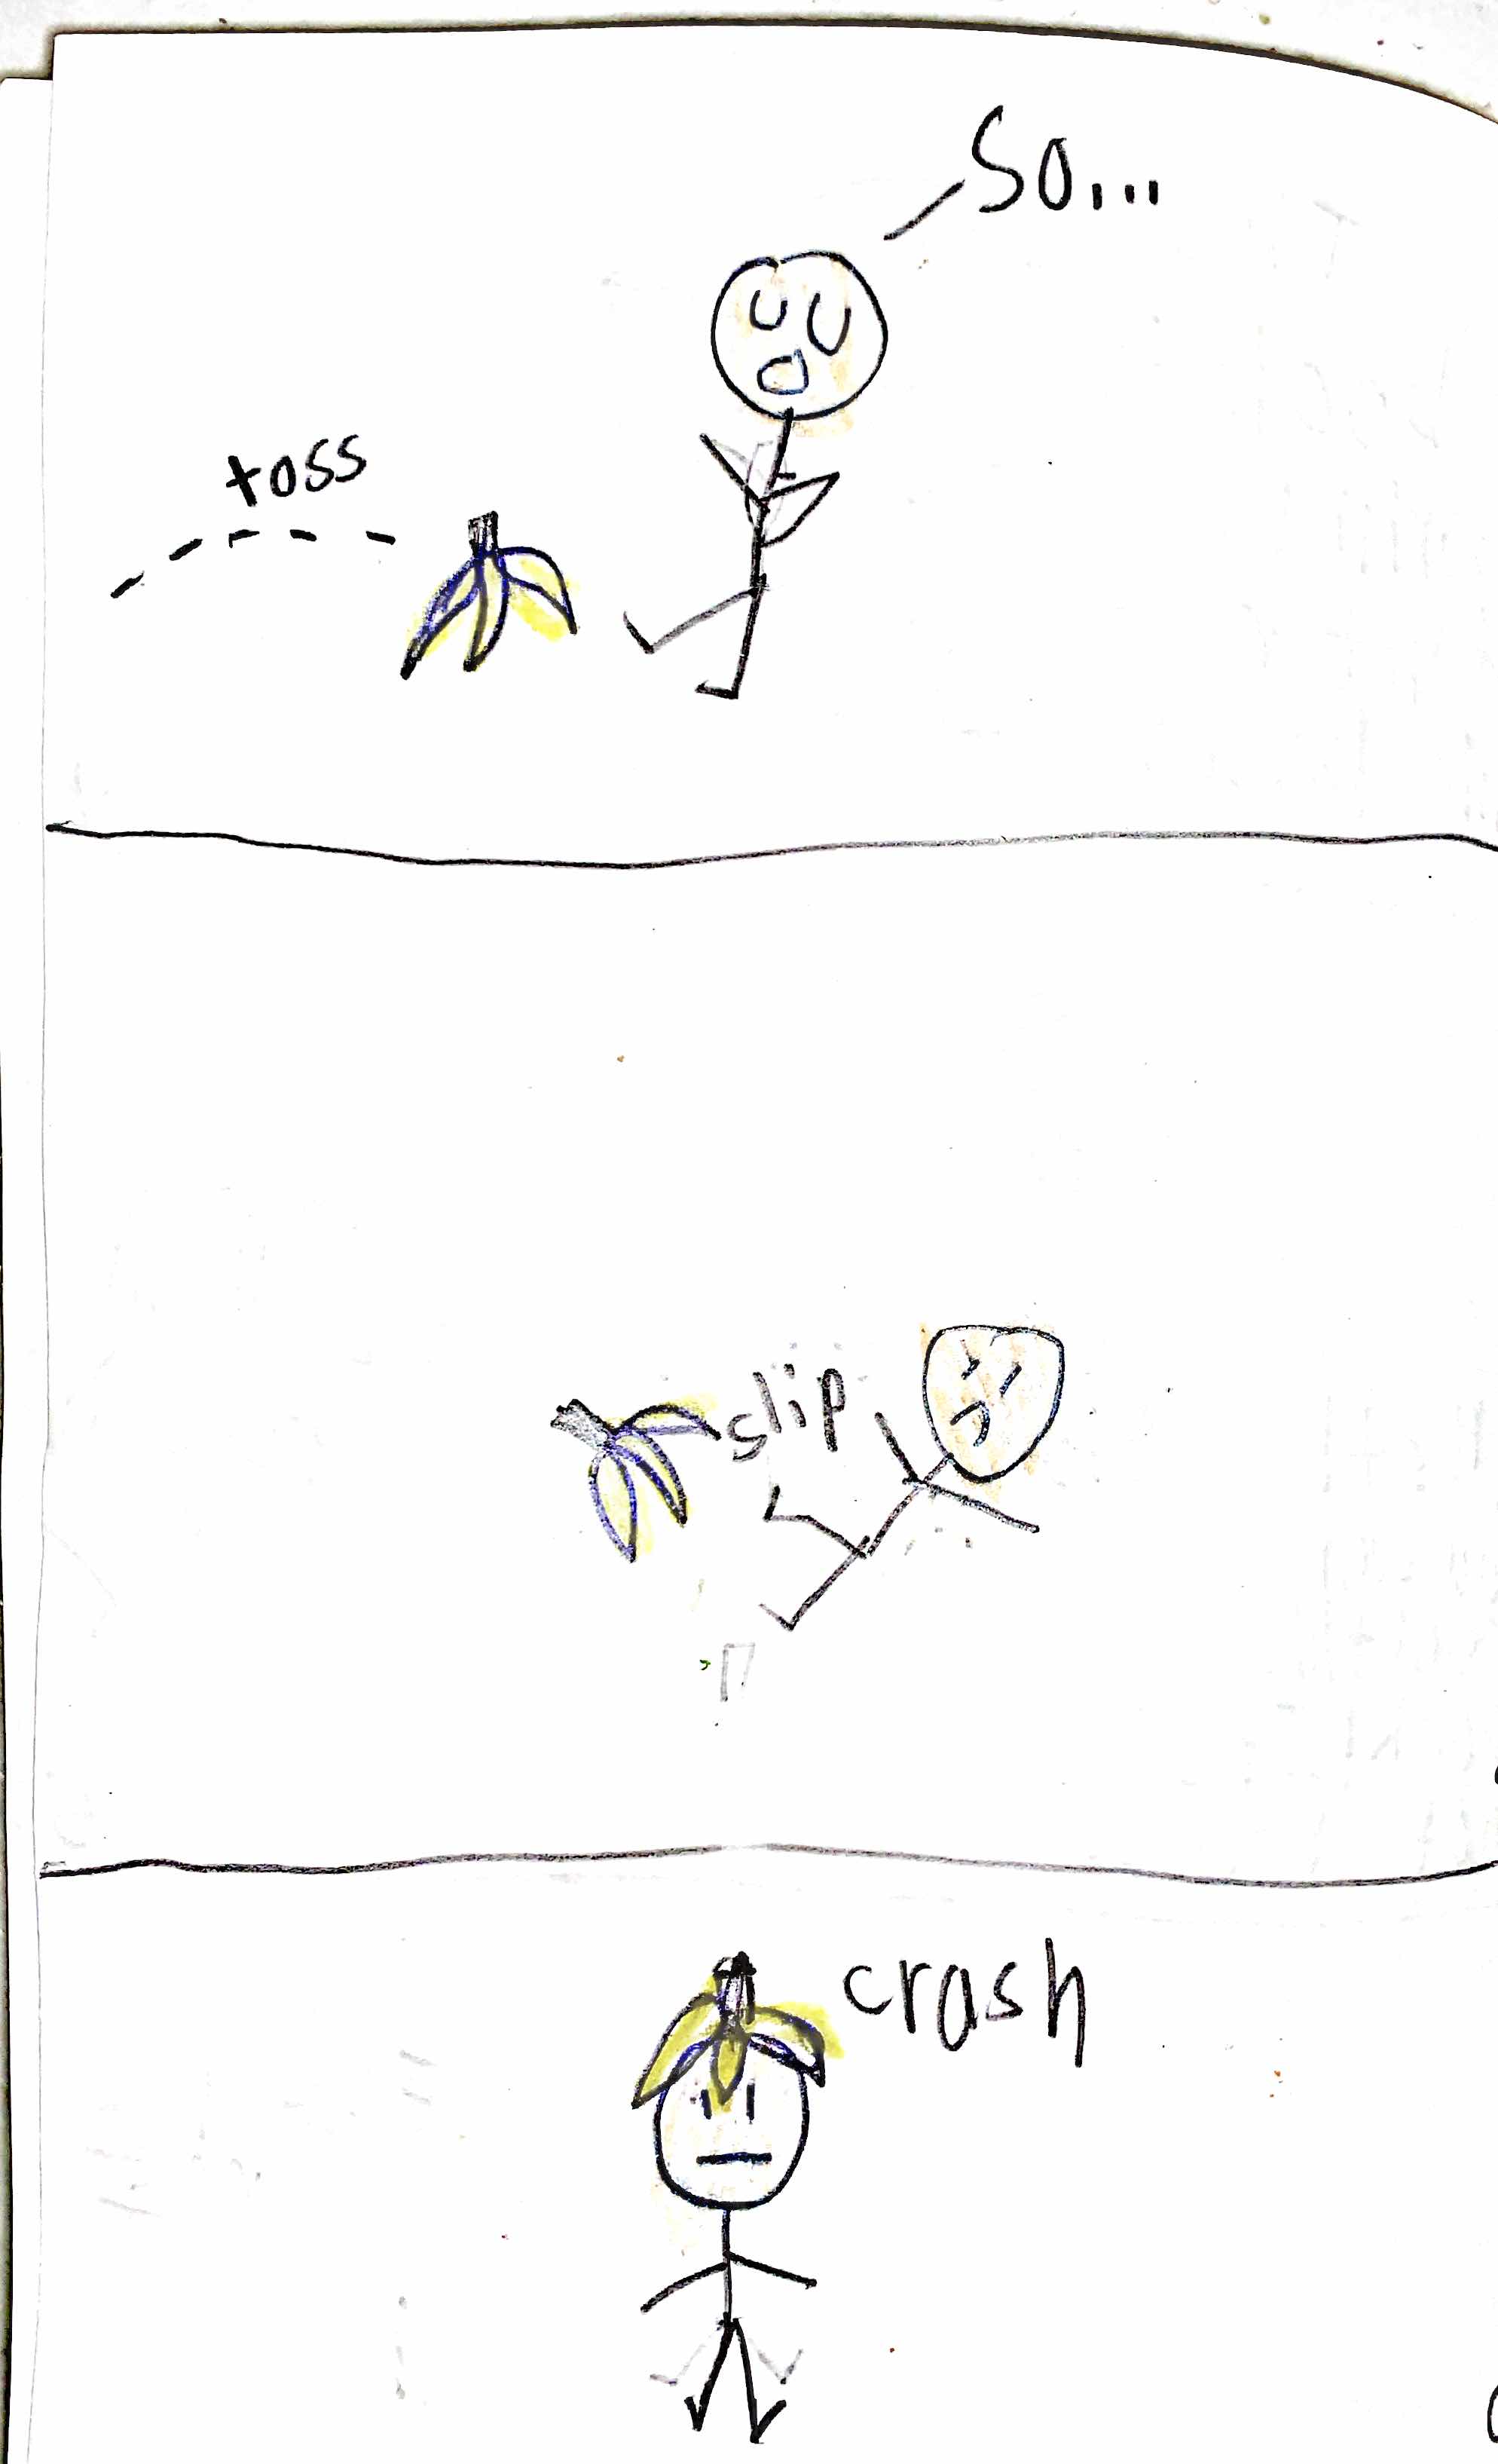 So...
toss
slip
crash